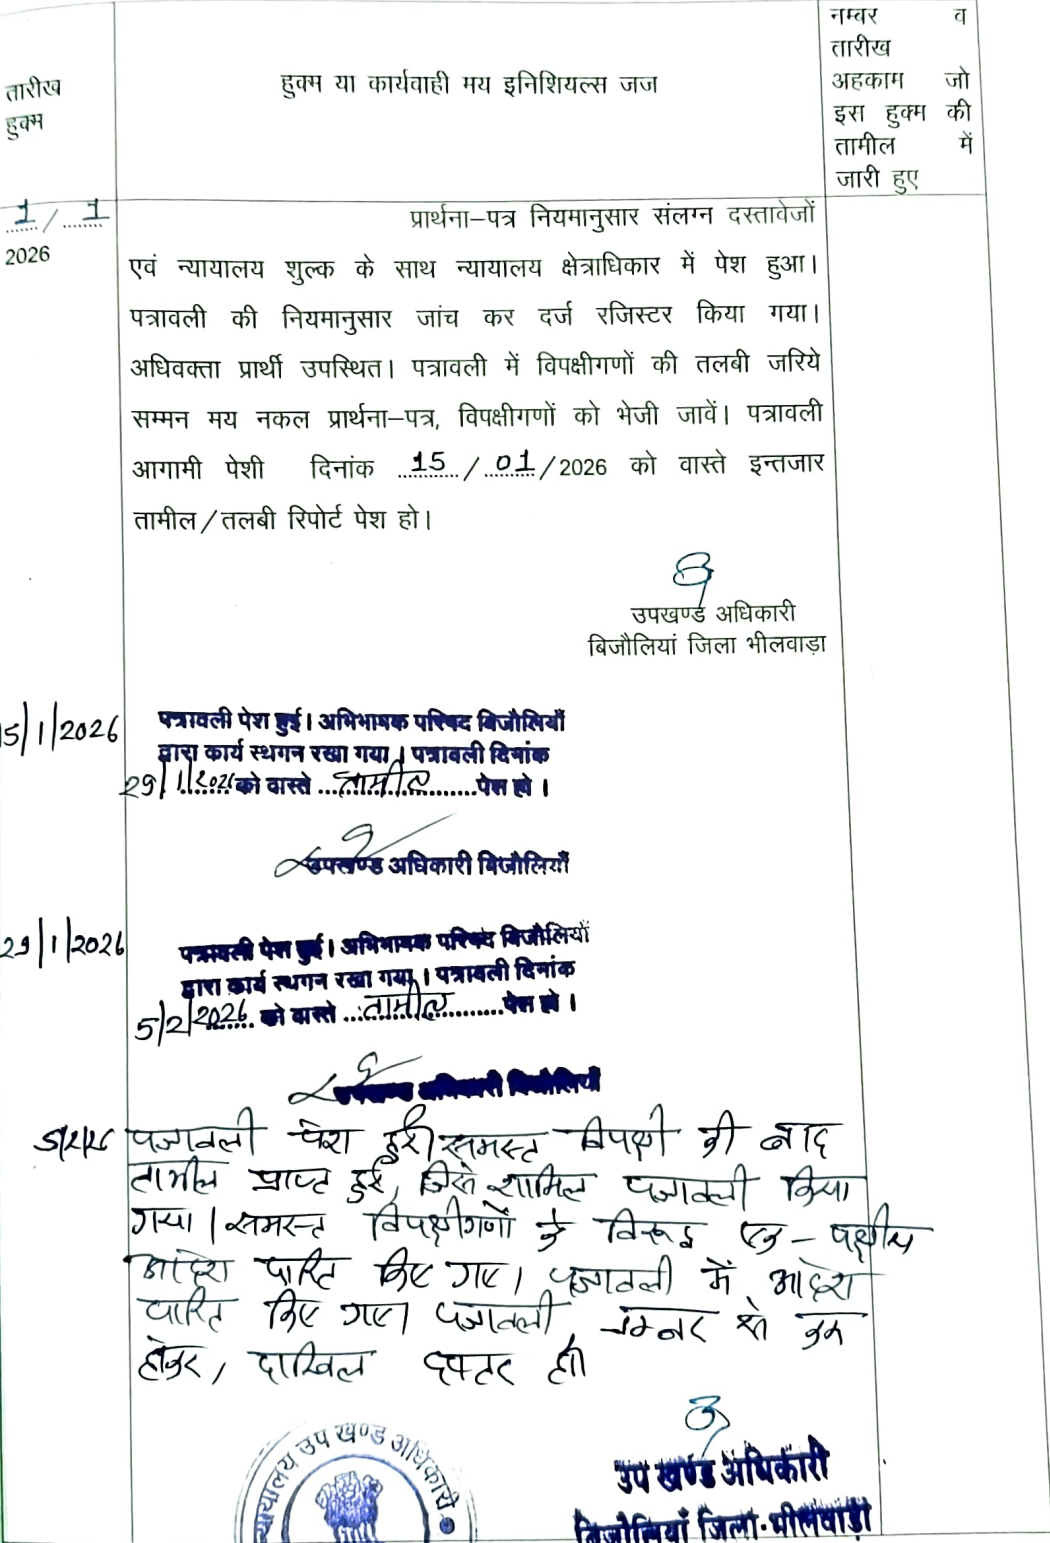 तारीख
हुक्म
हुक्म या कार्यवाही मय इनिशियल्स जज
नम्बर व
तारीख
अहकाम जो
इस हुक्म की
तामील में
जारी हुए
1 / 1
2026
प्रार्थना–पत्र नियमानुसार संलग्न दस्तावेजों
एवं न्यायालय शुल्क के साथ न्यायालय क्षेत्राधिकार में पेश हुआ।
पत्रावली की नियमानुसार जांच कर दर्ज रजिस्टर किया गया।
अधिवक्ता प्रार्थी उपस्थित। पत्रावली में विपक्षीगणों की तलबी जरिये
सम्मन मय नकल प्रार्थना–पत्र, विपक्षीगणों को भेजी जावें। पत्रावली
आगामी पेशी दिनांक 15 / 01 / 2026 को वास्ते इन्तजार
तामील / तलबी रिपोर्ट पेश हो।
उपखण्ड अधिकारी
बिजौलियां जिला भीलवाड़ा
15/1/2026
पत्रावली पेश हुई। अभिभाषक परिषद बिजौलियाँ
द्वारा कार्य स्थगन रखा गया। पत्रावली दिनांक
29/1/2026 को वास्ते तामील पेश हो।
उपखण्ड अधिकारी बिजौलियाँ
29/1/2026
पत्रावली पेश हुई। अभिभाषक परिषद बिजौलियाँ
द्वारा कार्य स्थगन रखा गया। पत्रावली दिनांक
5/2/2026 को वास्ते तामील पेश हो।
उपखण्ड अधिकारी बिजौलियाँ
5/2/26
पत्रावली पेश हुई। समस्त विपक्षी की बाद
तामील प्राप्त हुई, जिसे शामिल पत्रावली किया
गया। समस्त विपक्षीगणों के विरूद्ध एक – पक्षीय
आदेश पारित किए गए। पत्रावली में आदेश
पारित किए गए। पत्रावली नम्बर से कम
होकर, दाखिल दफ्तर हो।
न्यायालय उप खण्ड अधिकारी
उप खण्ड अधिकारी
बिजौलियाँ जिला-भीलवाड़ा